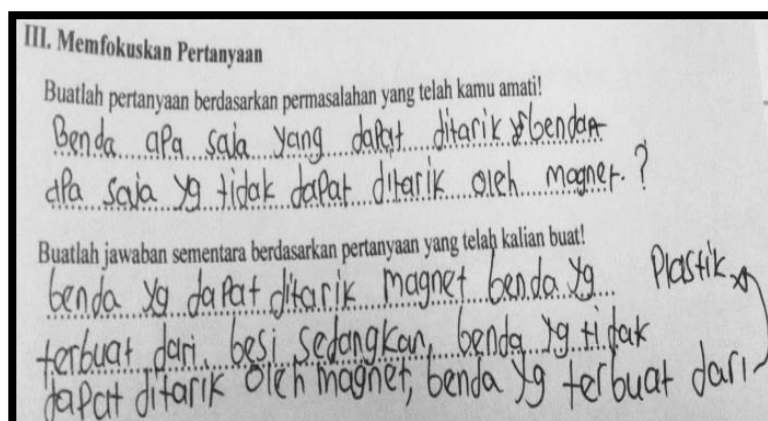 III. Memfokuskan Pertanyaan
Buatlah pertanyaan berdasarkan permasalahan yang telah kamu amati!
Benda apa saja yang dapat ditarik & benda
apa saja yg tidak dapat ditarik oleh magnet. ?
Buatlah jawaban sementara berdasarkan pertanyaan yang telah kalian buat!
benda yg dapat ditarik magnet benda yg
terbuat dari besi sedangkan benda yg tidak
dapat ditarik oleh magnet, benda yg terbuat dari
Plastik